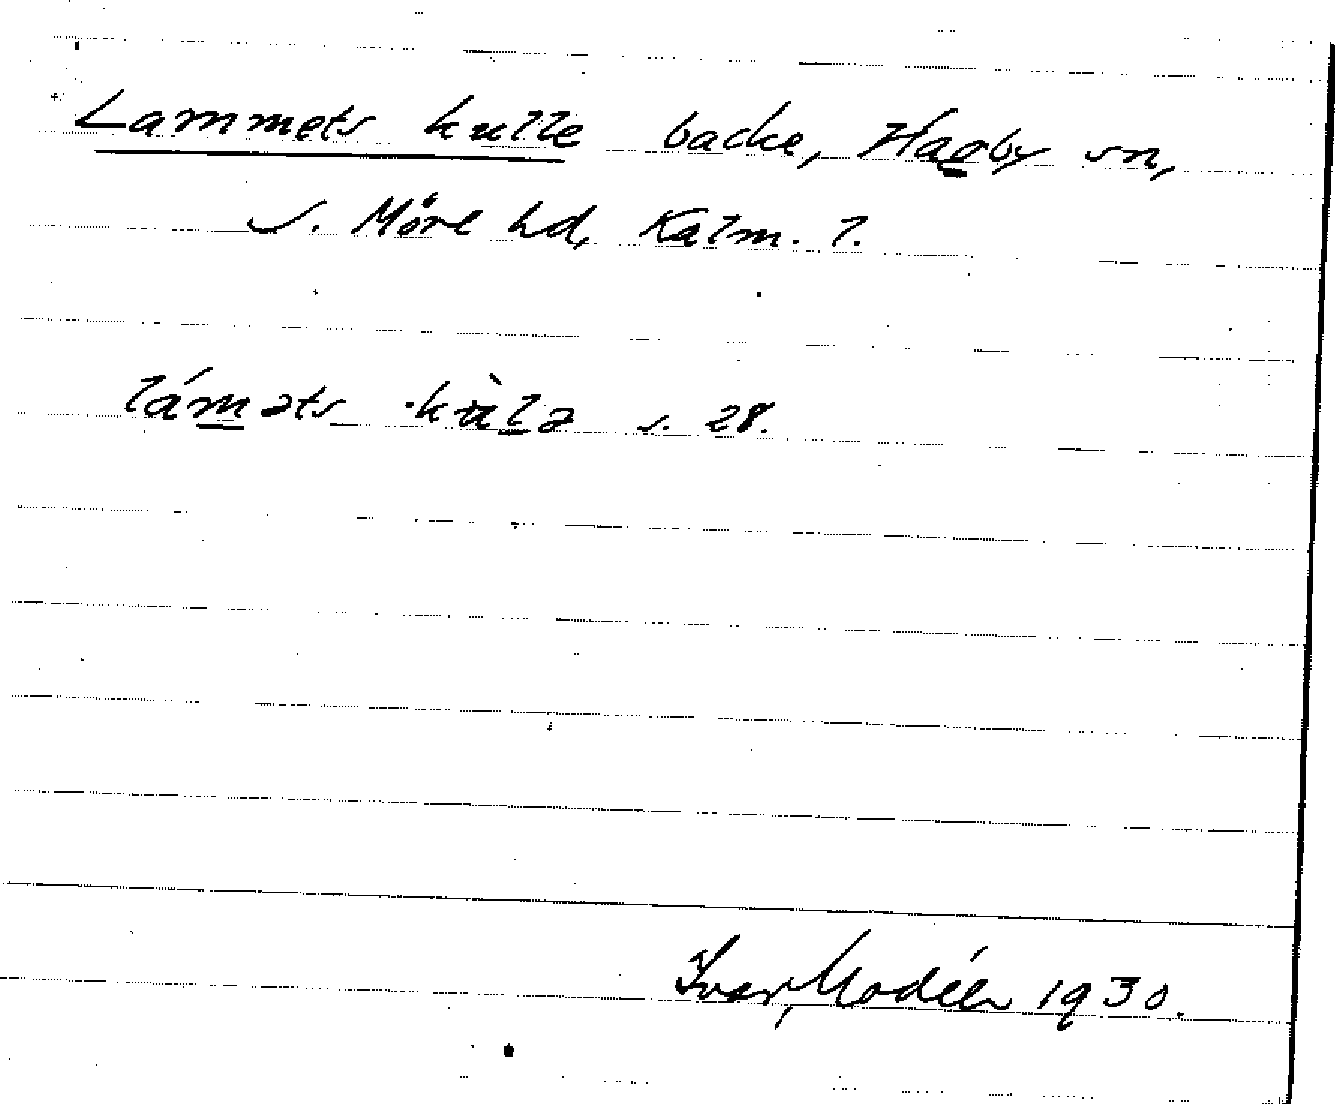 Lammets kulle backe, Hagby sn,
S. Möre hd, Kalm. l.
láməts ·kùlə s. 28.
Ivar Modéer 1930.